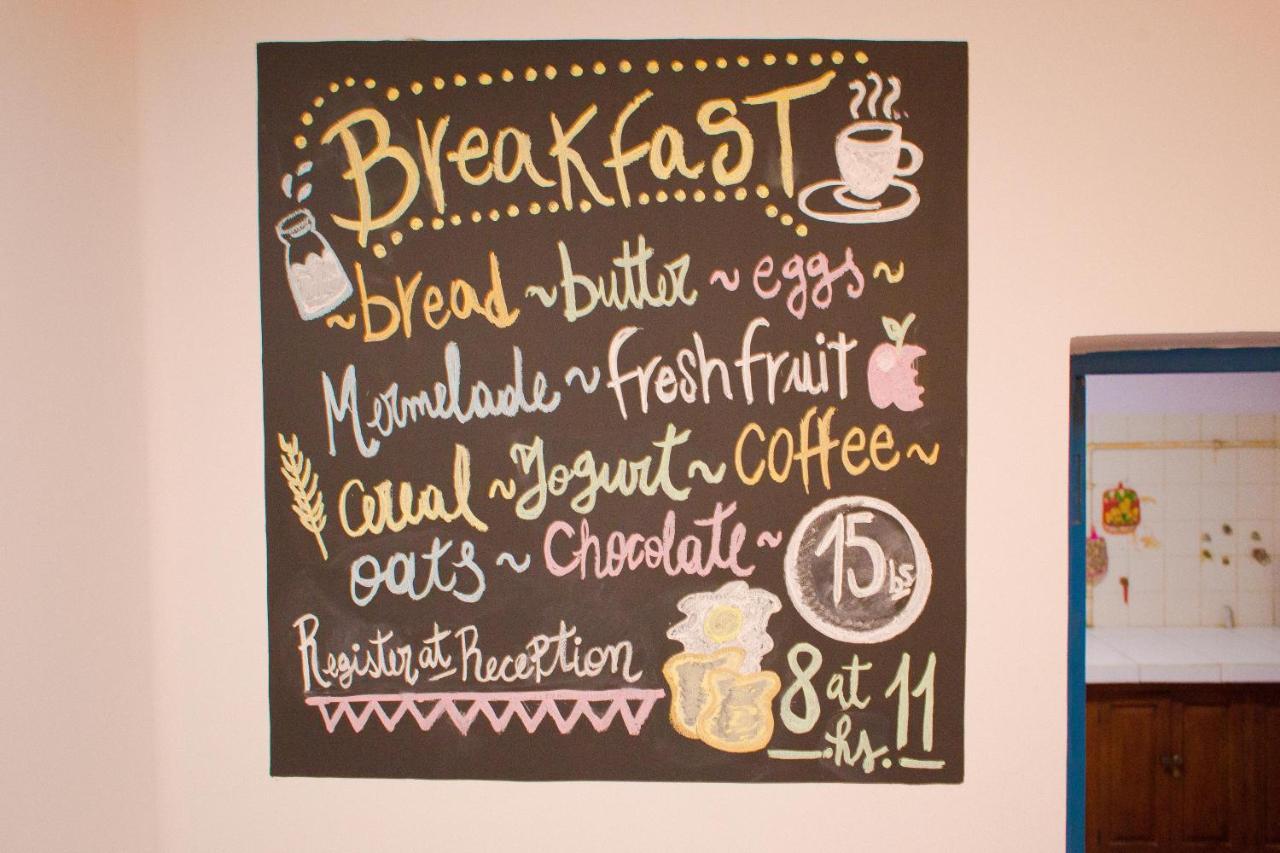 BreakfasT
~bread~butter~eggs~
Mermelade~fresh fruit
cereal~Yogurt~coffee~
oats~Chocolate~
15 bs
Register at Reception
8 at 11
.hs.